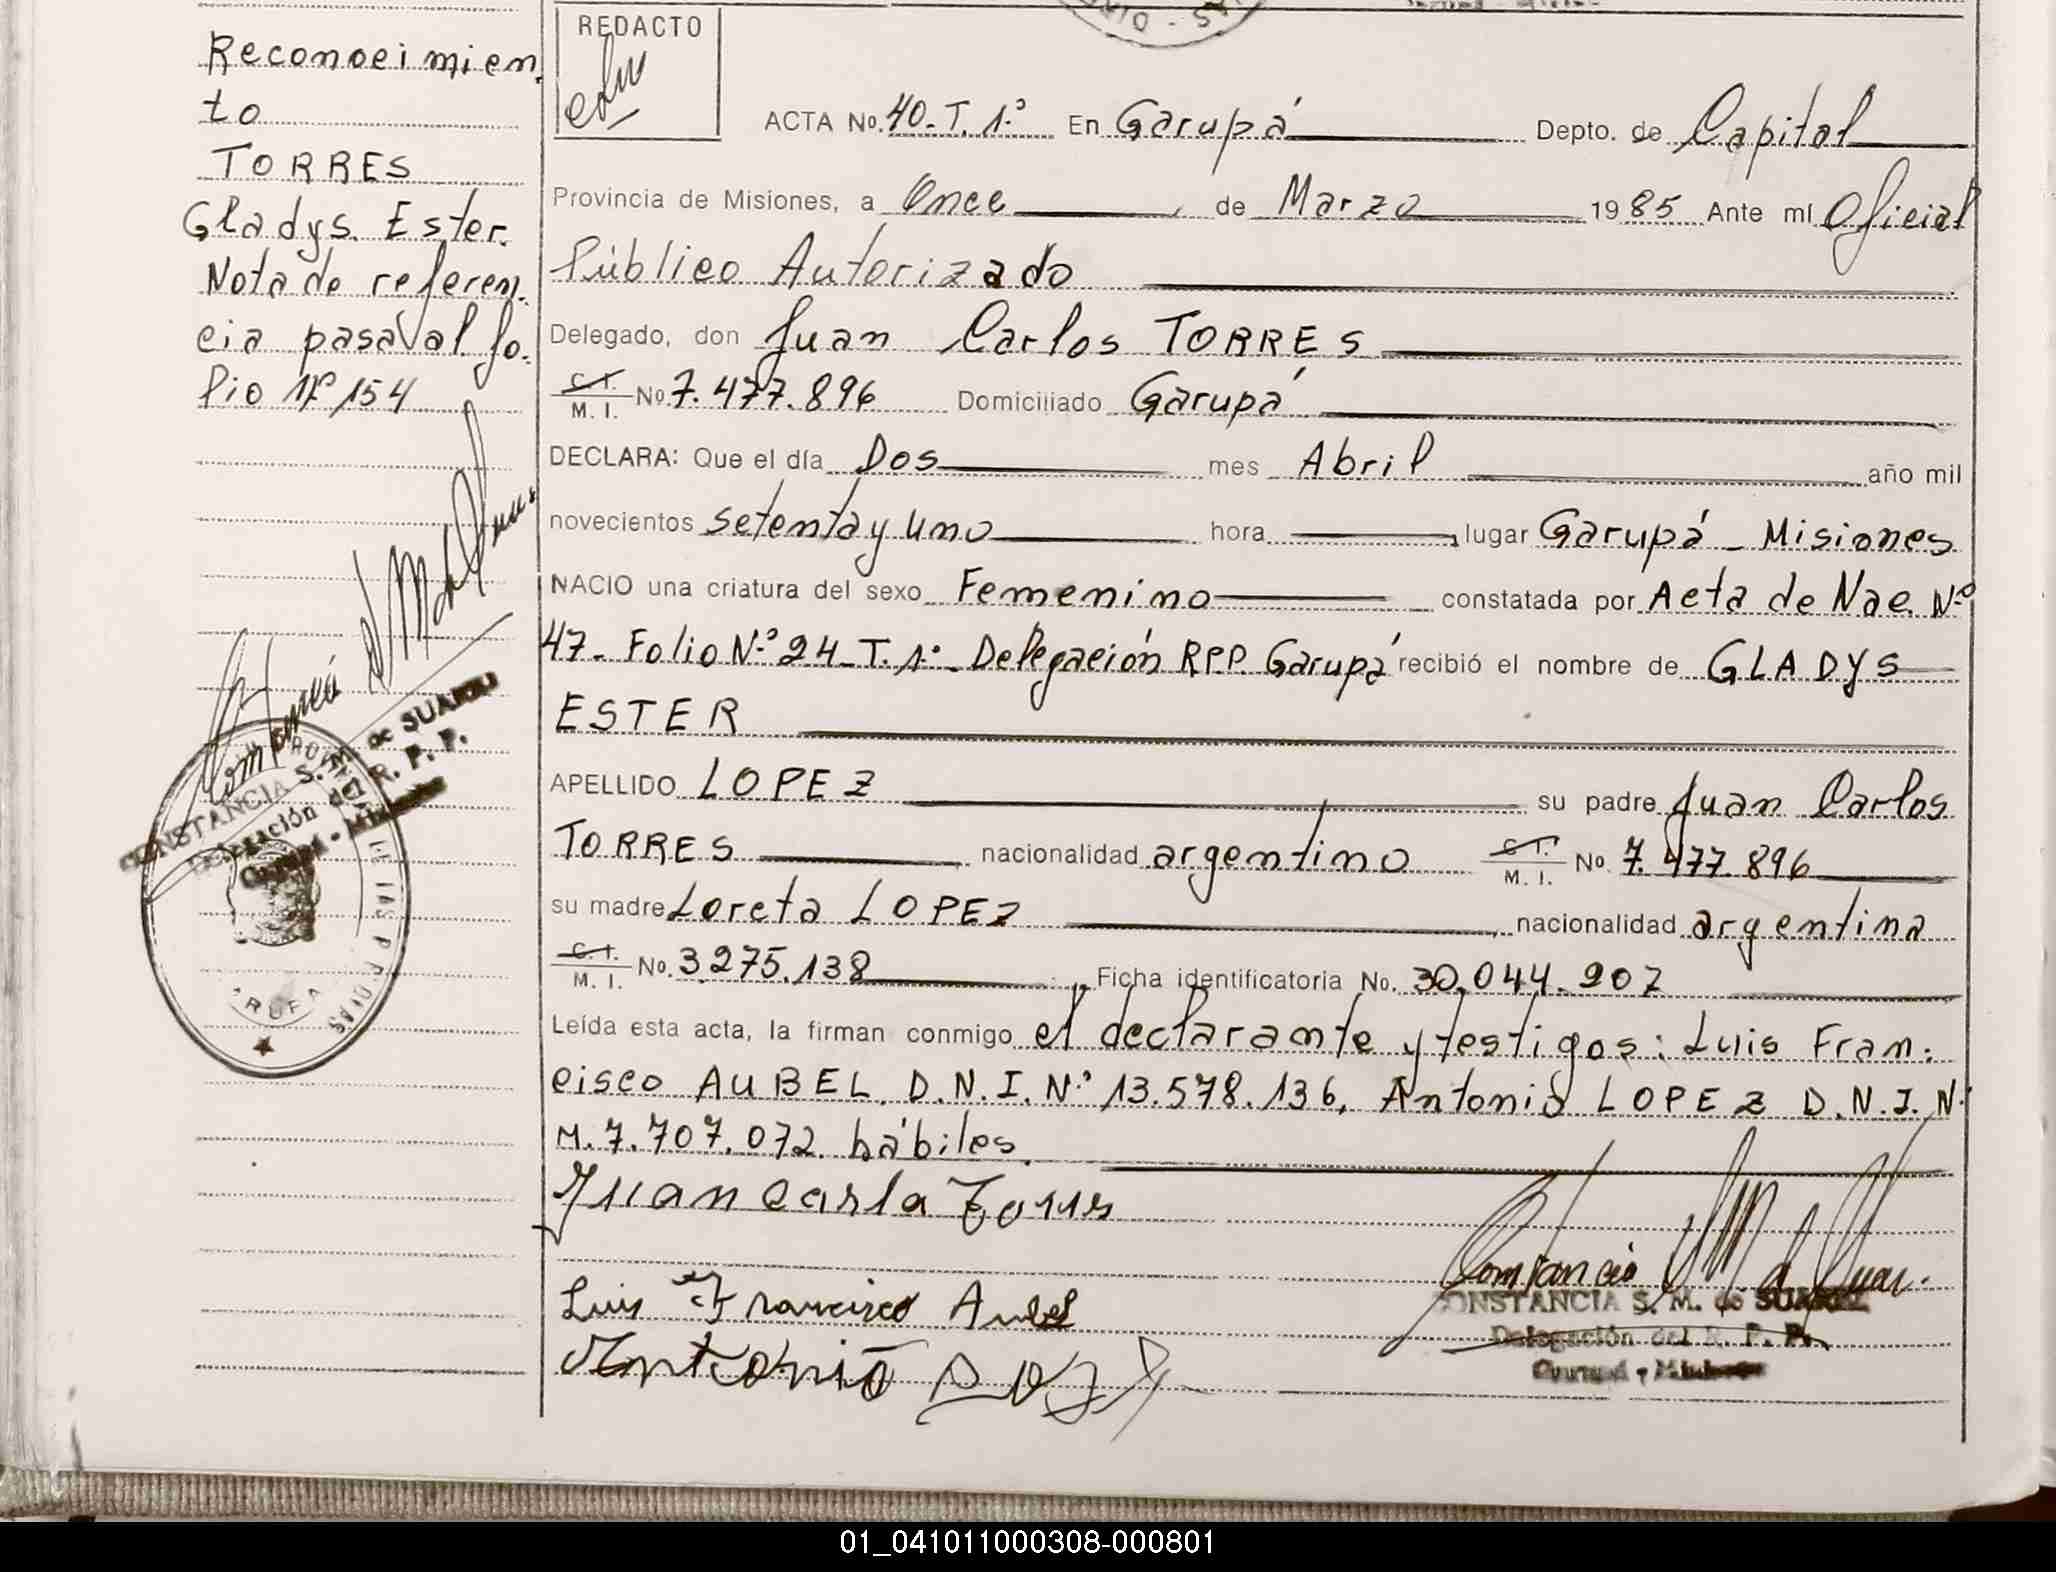 Reconocimien
to
TORRES
Gladys Ester.
Nota de referen.
cia pasa al fo.
lio Nº 154
CONSTANCIA S. M. de SUAREZ
Delegación del R. P. P.
REDACTO
ACTA No. 40. T. 1º En Garupá Depto. de Capital
Provincia de Misiones, a Once de Marzo 1985 Ante mí Oficial
Público Autorizado
Delegado, don Juan Carlos TORRES
C. I. M. I. No. 7.477.896 Domiciliado Garupá
DECLARA: Que el día Dos mes Abril año mil
novecientos setenta y uno hora lugar Garupá - Misiones
NACIO una criatura del sexo Femenino constatada por Acta de Nac. Nº
47 - Folio Nº 24 - T. 1º - Delegación RPP. Garupá recibió el nombre de GLADYS
ESTER
APELLIDO LOPEZ su padre Juan Carlos
TORRES nacionalidad argentino C. I. M. I. No. 7.477.896
su madre Loreta LOPEZ, nacionalidad argentina
C. I. M. I. No. 3.275.138, Ficha identificatoria No. 30.044.207
Leída esta acta, la firman conmigo el declarante y testigos: Luis Fran.
cisco AUBEL. D.N.I. Nº 13.578.136, Antonio LOPEZ D.N.I. Nº
M. 7.707.072 hábiles.
Juan Carlo Torres
Luis Francisco Aubel
Antonio
CONSTANCIA S. M. de SUAREZ
Delegación del R. P. P.
Garupá - Misiones
01_041011000308-000801